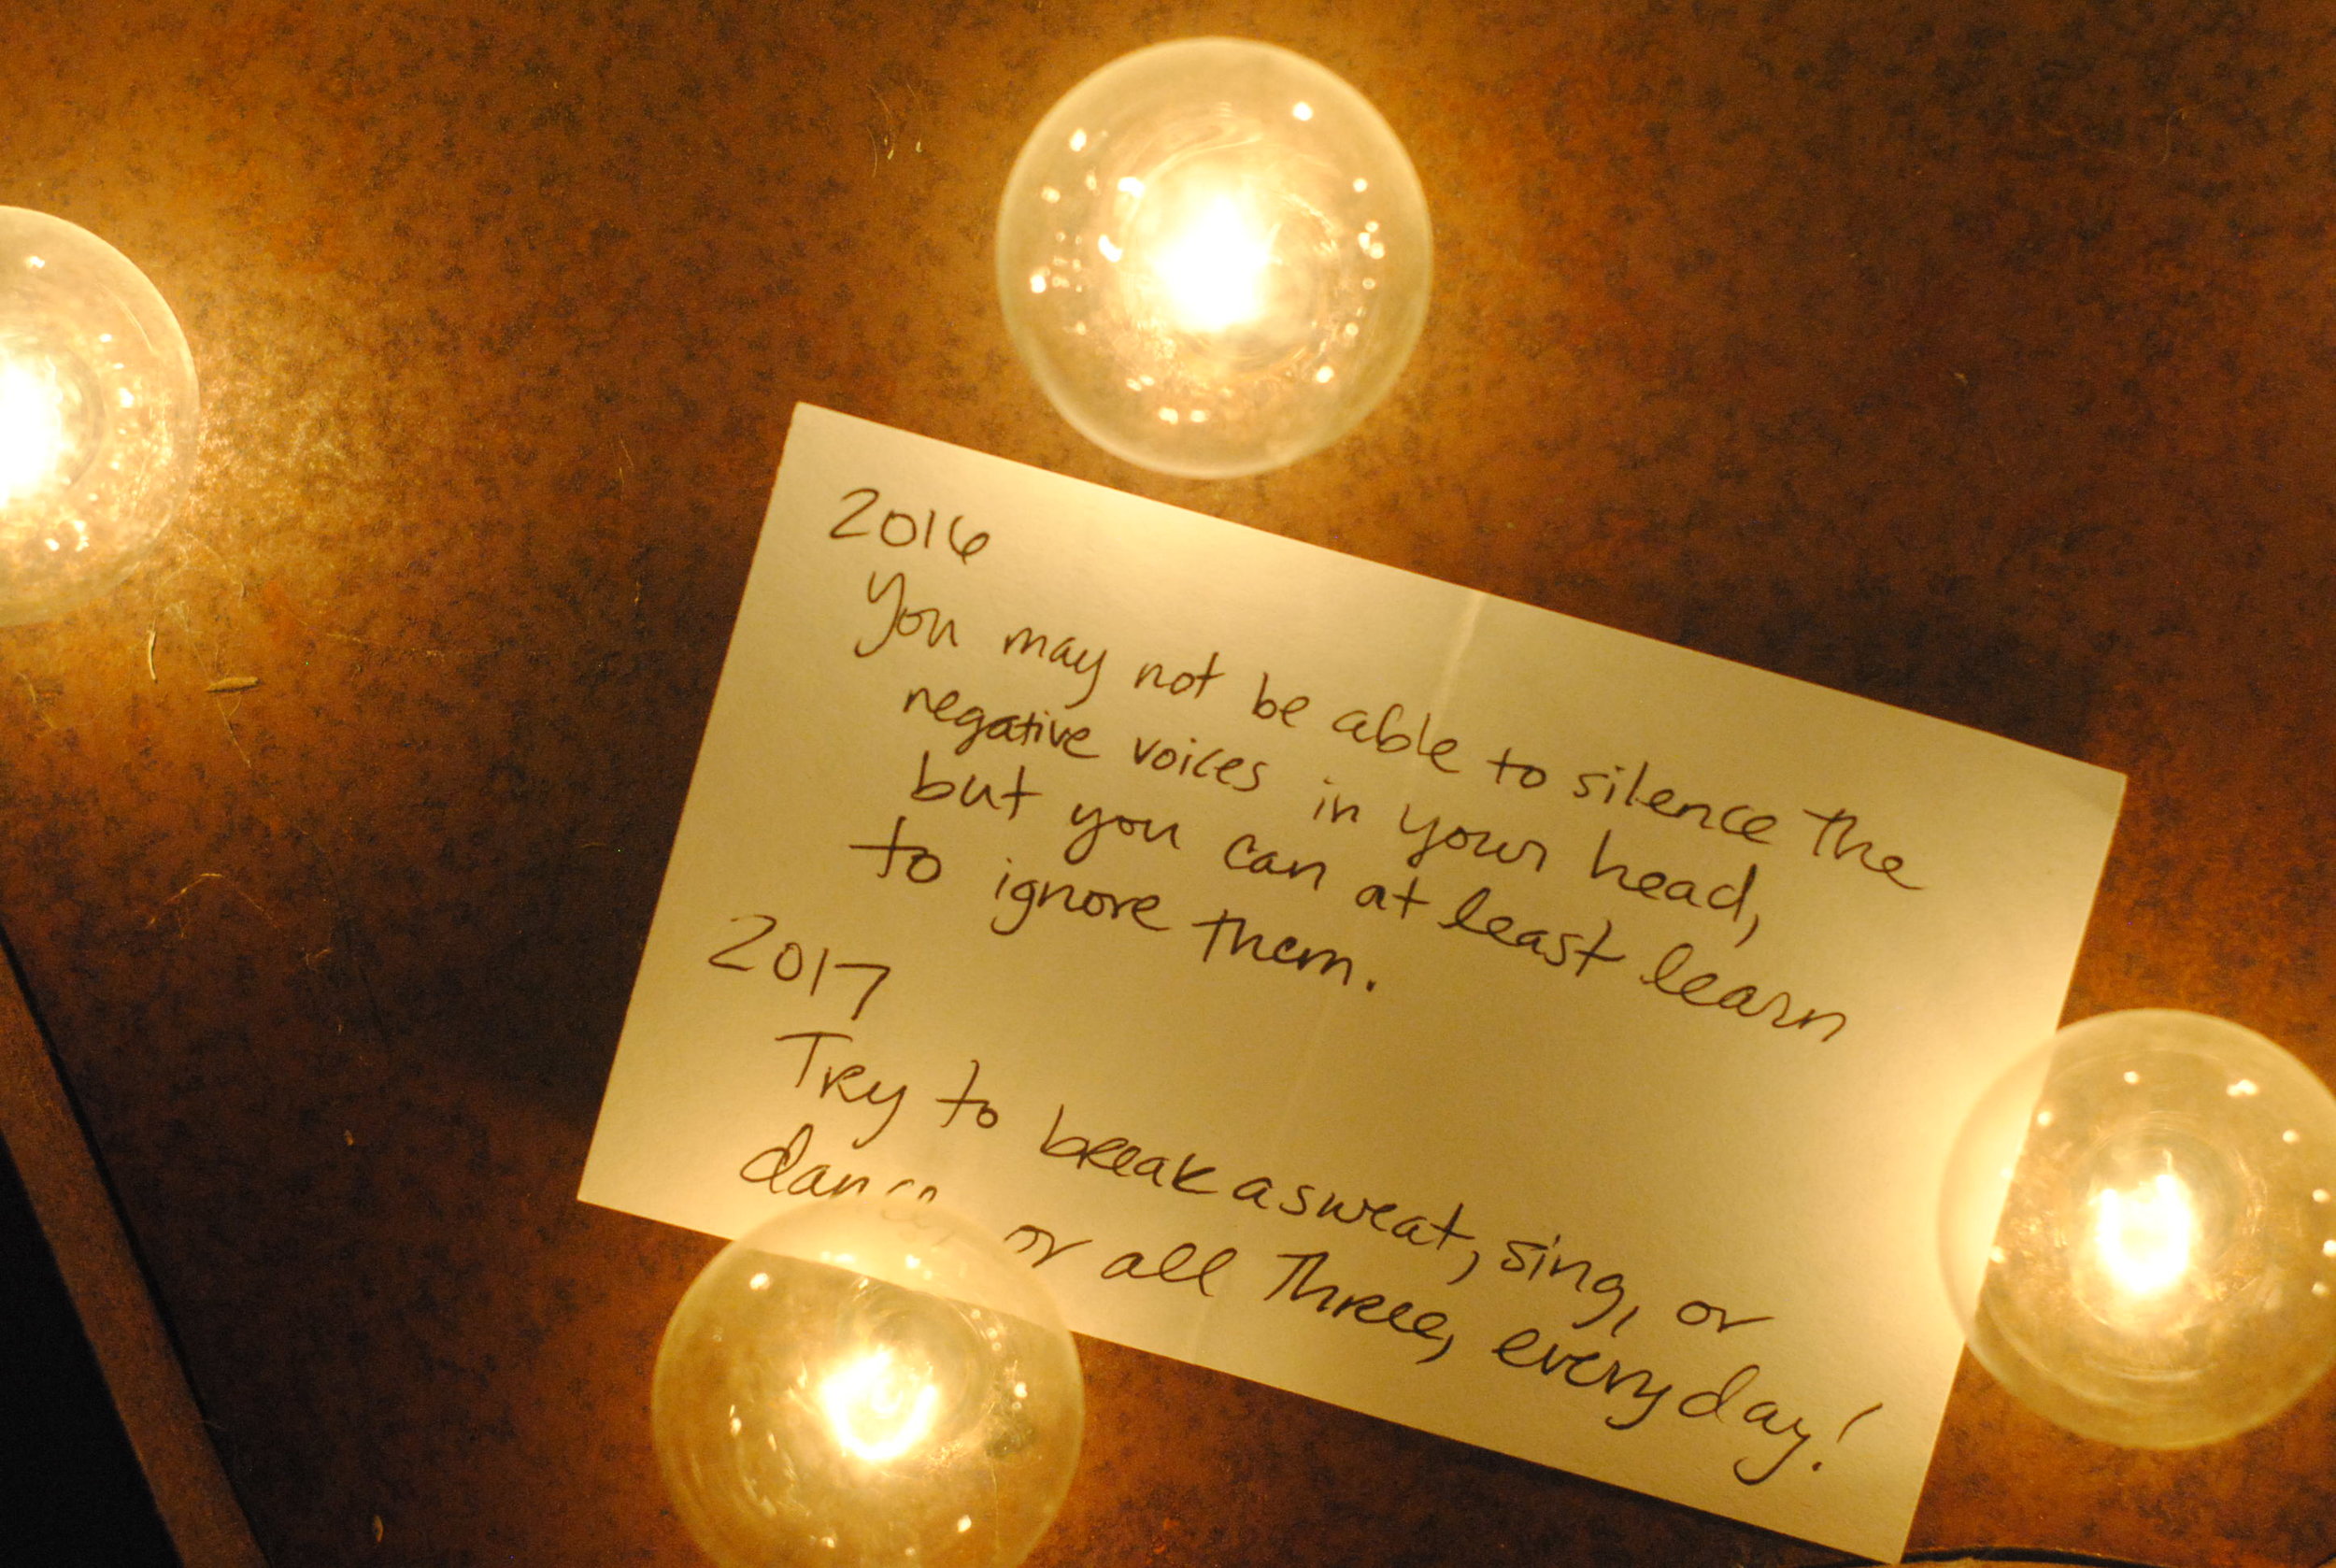 2016
You may not be able to silence the
negative voices in your head,
but you can at least learn
to ignore them.
2017
Try to break a sweat, sing, or
dance, or all three, everyday!